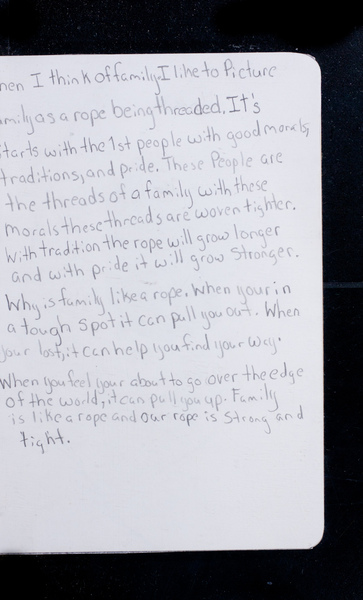 hen I think of family, I like to Picture
mily as a rope being threaded. It's
starts with the 1st people with good morals,
traditions, and pride. These People are
the threads of a family with these
morals these threads are woven tighter.
With tradition the rope will grow longer
and with pride it will grow Stronger.
Why is family like a rope. When your in
a tough spot it can pull you out. When
your lost, it can help you find your way.
When you feel your about to go over the edge
of the world, it can pull you up. Family
is like a rope and our rope is Strong and
tight.